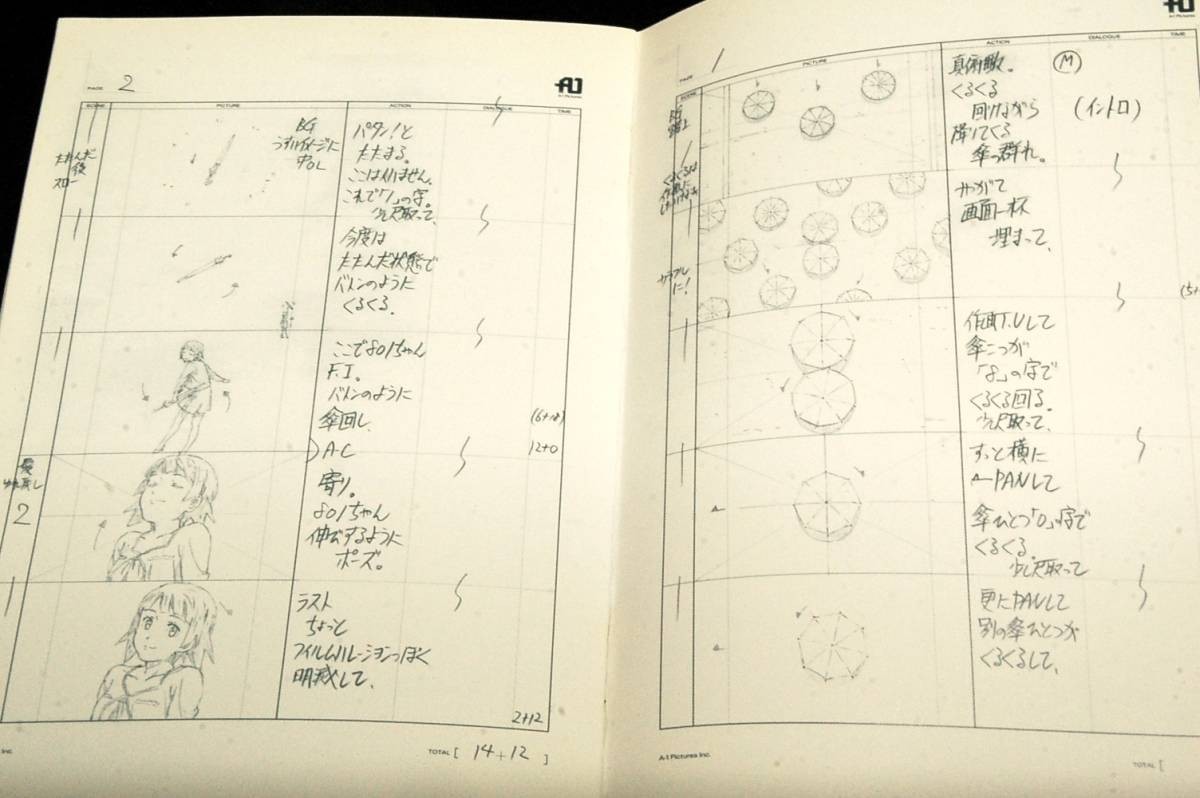 PAGE 2
A-1 Pictures
SCENE PICTURE ACTION DIALOGUE TIME
たたんだ
後
スロー
BG
うすいイメージに
パタン!と
たたまる。
これで「1」の字。
少し尺取って、
今度は
たたんだ状態で
バトンのように
くるくる。
ここで801ちゃん
F.I。
バトンのように
傘回し、
12+0
A.C
2
寄り。
801ちゃん
伸びするように
ポーズ。
ラスト
ちょっと
フィルムハレーションっぽく
明滅して、
2+12
Inc.
TOTAL [ 14+12 ]
PAGE 1
A-1 Pictures
SCENE PICTURE ACTION DIALOGUE TIME
BG
真俯瞰。
くるくる
回りながら
降りてくる
傘の群れ。
M
(イントロ)
やがて
画面一杯
埋まって、
カラフル
に!
T.Uして
傘二つが
「8」の字で
くるくる回る。
少し尺取って、
すっと横に
←PANして
傘ひとつ「0」の字で
くるくる。
少し尺取って
更にPANして
別の傘ひとつが
くるくるして、
A-1 Pictures Inc.
TOTAL [